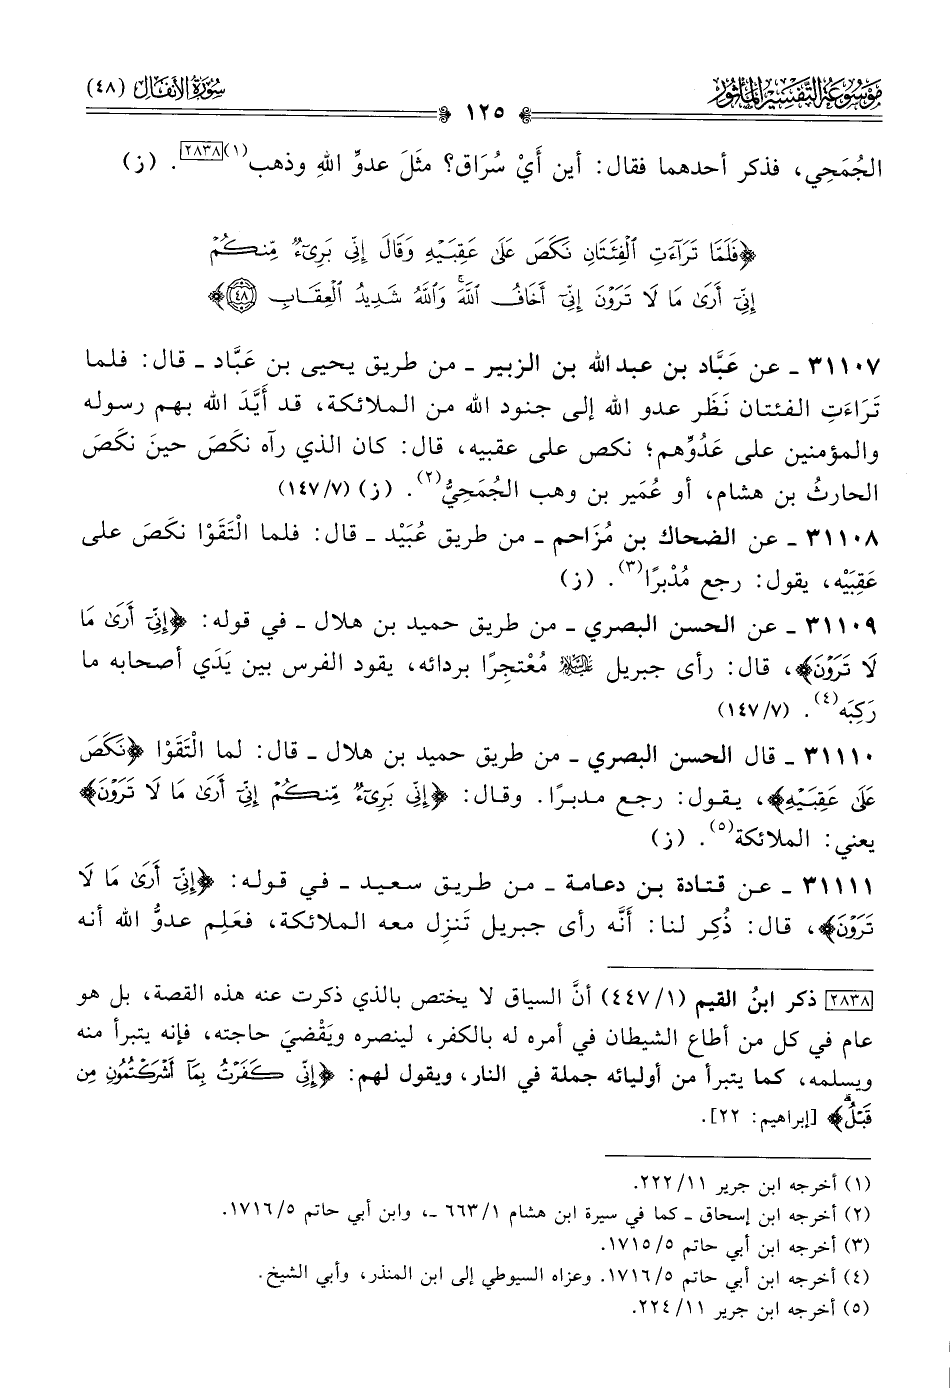 موسوعة التفسير المأثور
١٢٥
سورة الأنفال (٤٨)
الجُمَحِي، فذكر أحدهما فقال: أين أَيْ سُرَاق؟ مثَلَ عدوِّ اللهِ وذهب(١)[٢٨٣٨]. (ز)
﴿فَلَمَّا تَرَآءَتِ ٱلْفِئَتَانِ نَكَصَ عَلَىٰ عَقِبَيْهِ وَقَالَ إِنِّى بَرِىٓءٌ مِّنكُمْ
إِنِّىٓ أَرَىٰ مَا لَا تَرَوْنَ إِنِّىٓ أَخَافُ ٱللَّهَ ۚ وَٱللَّهُ شَدِيدُ ٱلْعِقَابِ ٤٨﴾
٣١١٠٧ ـ عن عَبَّاد بن عبدالله بن الزبير ـ من طريق يحيى بن عَبَّاد ـ قال: فلما
تَرَاءَتِ الفئتان نَظَر عدو الله إلى جنود الله من الملائكة، قد أَيَّدَ الله بهم رسوله
والمؤمنين على عَدُوِّهم؛ نكص على عقبيه، قال: كان الذي رآه نكَصَ حينَ نكَصَ
الحارثُ بن هشام، أو عُمَير بن وهب الجُمَحِيُّ(٢). (ز) (١٤٧/٧)
٣١١٠٨ ـ عن الضحاك بن مُزَاحم ـ من طريق عُبَيْد ـ قال: فلما الْتَقَوْا نكَصَ على
عَقِبَيْه، يقول: رجع مُدْبرًا(٣). (ز)
٣١١٠٩ ـ عن الحسن البصري ـ من طريق حميد بن هلال ـ في قوله: ﴿إِنِّىٓ أَرَىٰ مَا
لَا تَرَوْنَ﴾، قال: رأى جبريل عليه السلام مُعْتجِرًا بردائه، يقود الفرس بين يَدَي أصحابه ما
رَكِبَه(٤). (١٤٧/٧)
٣١١١٠ ـ قال الحسن البصري ـ من طريق حميد بن هلال ـ قال: لما الْتَقَوْا ﴿نَكَصَ
عَلَىٰ عَقِبَيْهِ﴾، يقول: رجع مدبرًا. وقال: ﴿إِنِّى بَرِىٓءٌ مِّنكُمْ إِنِّىٓ أَرَىٰ مَا لَا تَرَوْنَ﴾
يعني: الملائكة(٥). (ز)
٣١١١١ ـ عن قتادة بن دعامة ـ من طريق سعيد ـ في قوله: ﴿إِنِّىٓ أَرَىٰ مَا لَا
تَرَوْنَ﴾، قال: ذُكِر لنا: أنَّه رأى جبريل تَنزِل معه الملائكة، فعَلِم عدوُّ الله أنه
[٢٨٣٨] ذكر ابنُ القيم (٤٤٧/١) أنَّ السياق لا يختص بالذي ذكرت عنه هذه القصة، بل هو
عام في كل من أطاع الشيطان في أمره له بالكفر، لينصره ويَقْضيَ حاجته، فإنه يتبرأ منه
ويسلمه، كما يتبرأ من أوليائه جملة في النار، ويقول لهم: ﴿إِنِّى كَفَرْتُ بِمَآ أَشْرَكْتُمُونِ مِن
قَبْلُ﴾ [إبراهيم: ٢٢].
(١) أخرجه ابن جرير ٢٢٢/١١.
(٢) أخرجه ابن إسحاق ـ كما في سيرة ابن هشام ٦٦٣/١ ـ، وابن أبي حاتم ١٧١٦/٥.
(٣) أخرجه ابن أبي حاتم ١٧١٥/٥.
(٤) أخرجه ابن أبي حاتم ١٧١٦/٥. وعزاه السيوطي إلى ابن المنذر، وأبي الشيخ.
(٥) أخرجه ابن جرير ٢٢٤/١١.